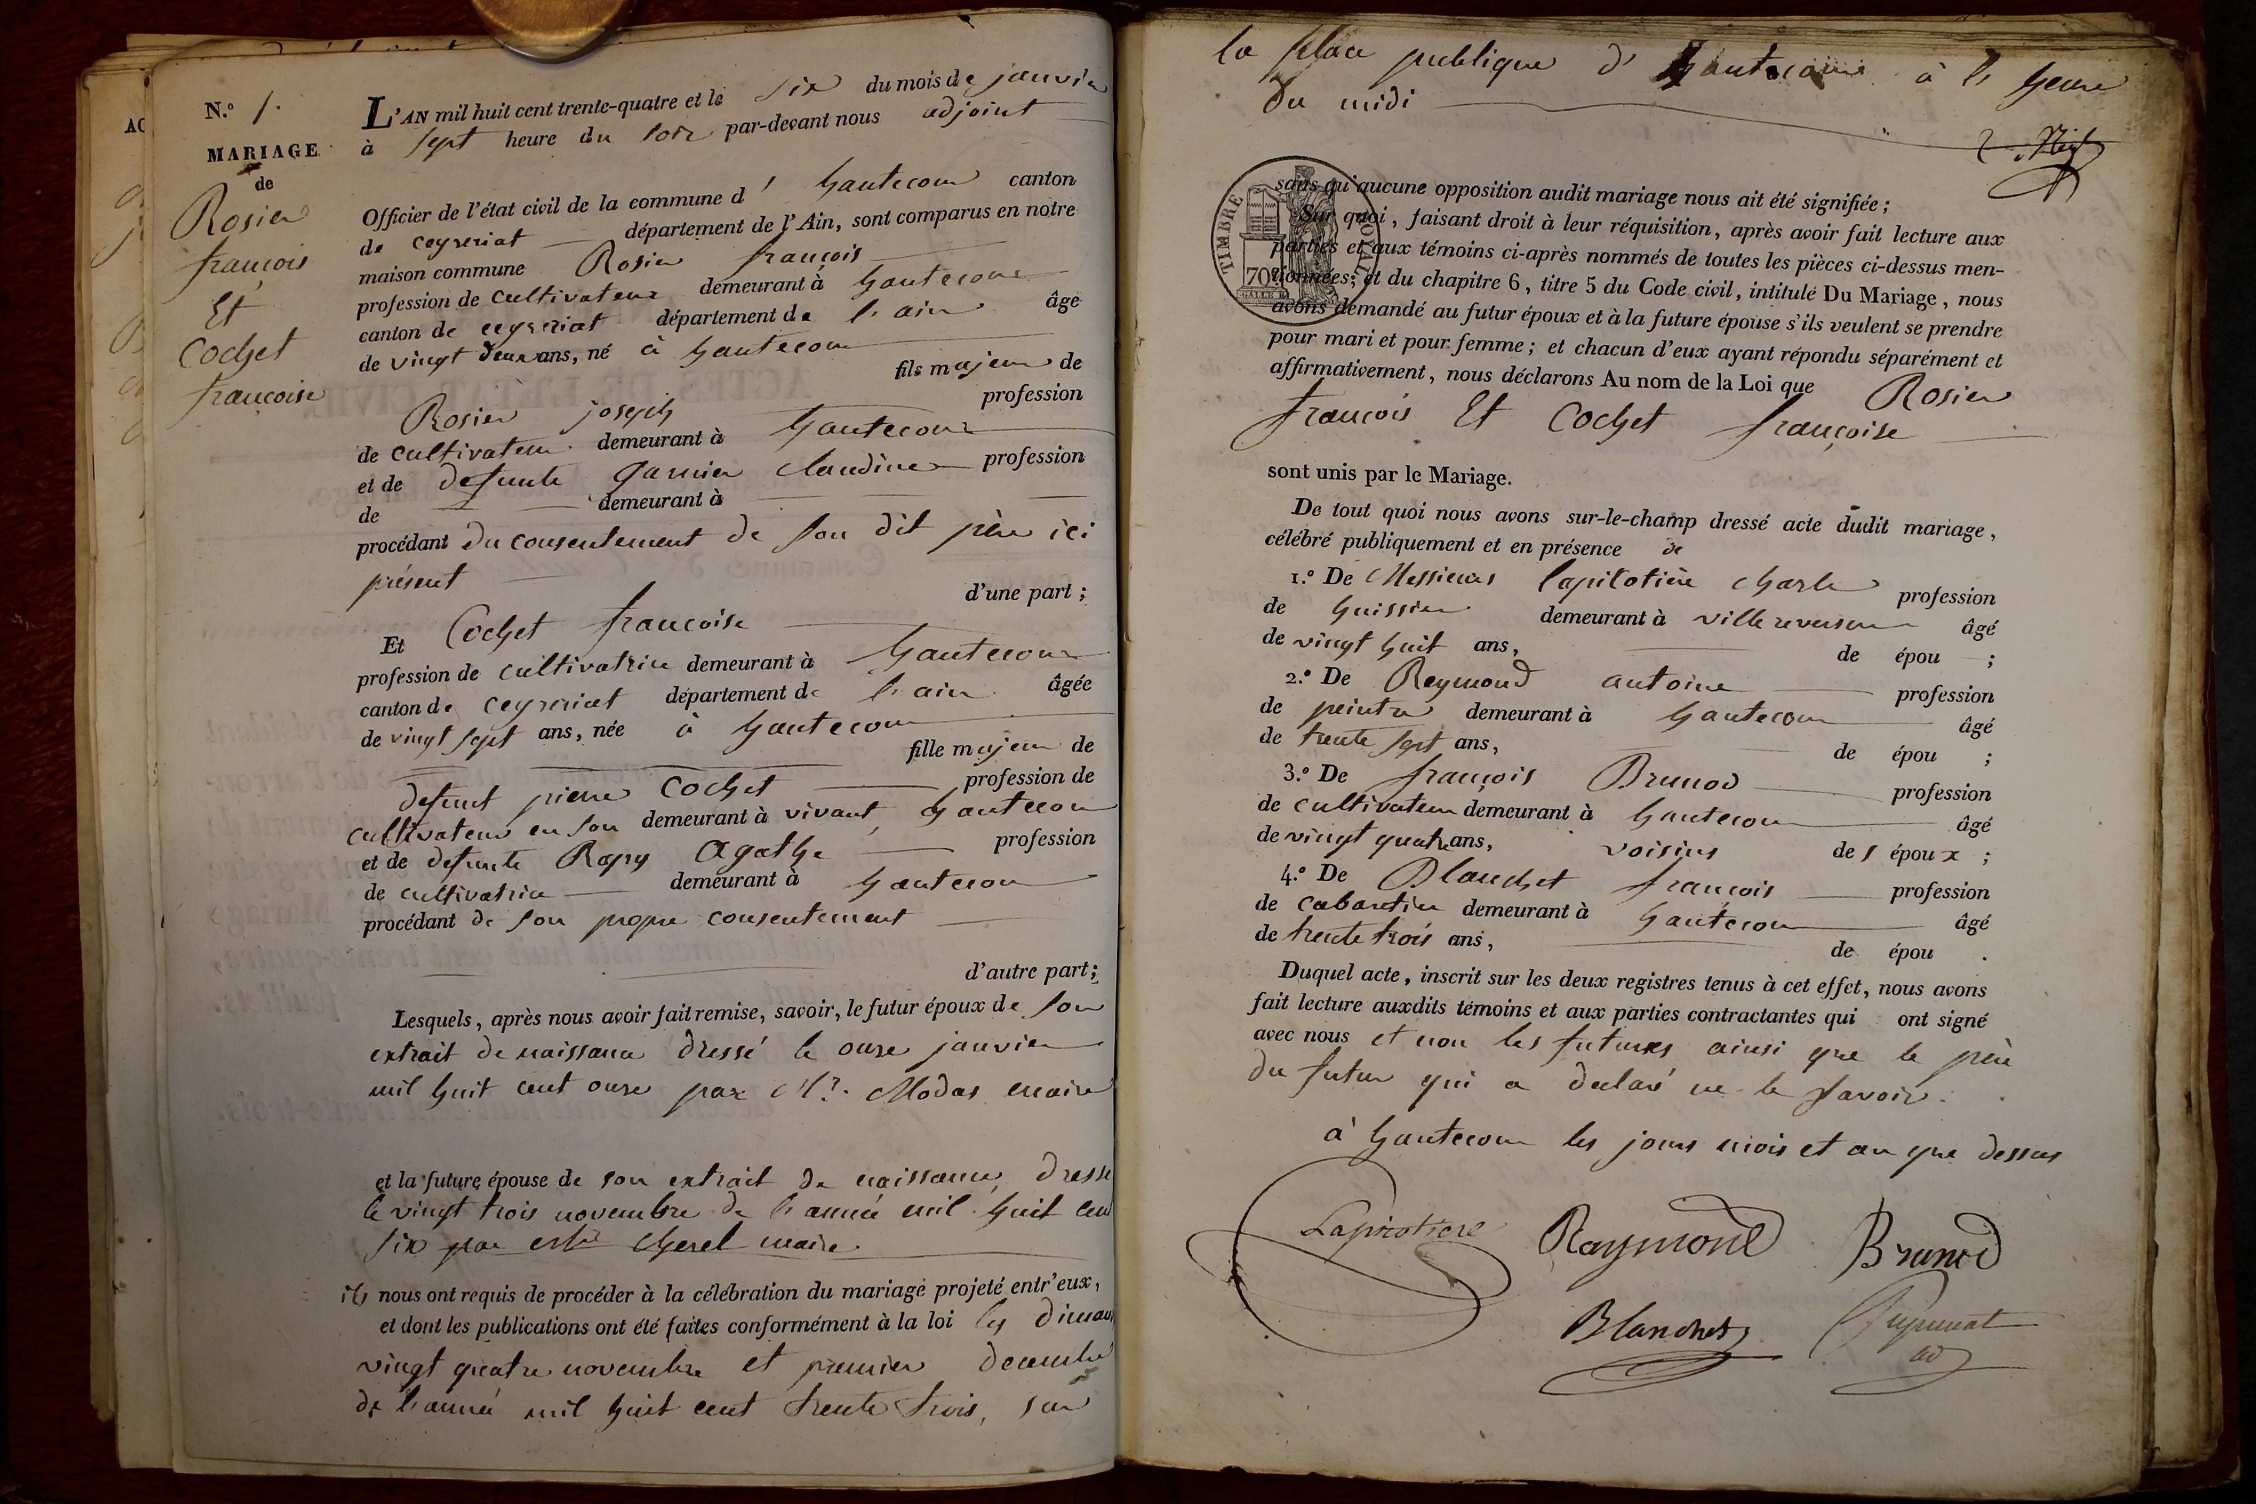 N.o 1.
MARIAGE
de
Rosier
françois
Et
Cochet
francoise
L'AN mil huit cent trente-quatre et le six du mois de janvier
à sept heure du soir par-devant nous adjoint
Officier de l'état civil de la commune d' hautecour canton
de ceyseriat département de l'Ain, sont comparus en notre
maison commune Rosier françois
profession de cultivateur demeurant à hautecour
canton de ceyseriat département de l'ain âgé
de vingt deux ans, né à hautecour
fils majeur de
Rosier joseph profession
de cultivateur demeurant à hautecour
et de defunte garnier claudine profession
de demeurant à
procédant du consentement de son dit père ici
présent
d'une part;
Et Cochet francoise
profession de cultivatrice demeurant à hautecour
canton de ceyseriat département de l'ain âgée
de vingt sept ans, née à hautecour
fille majeur de
defunt pierre Cochet profession de
cultivateur en son demeurant à vivant hautecour
et de defunte Rapy agathe profession
de cultivatrice demeurant à hautecour
procédant de son propre consentement
d'autre part;
Lesquels, après nous avoir fait remise, savoir, le futur époux de son
extrait de naissance dressé le onze janvier
mil huit cent onze par Mr. Modas maire
et la future épouse de son extrait de naissance dressé
le vingt trois novembre de l'année mil huit cent
six par cherel maire
ils nous ont requis de procéder à la célébration du mariage projeté entr'eux,
et dont les publications ont été faites conformément à la loi les
vingt quatre novembre et premier decembre
de l'année mil huit cent trente trois, sur
la place publique d' hautecour à l'heure
du midi
TIMBRE ROYAL
70
sans qu'aucune opposition audit mariage nous ait été signifiée;
Sur quoi, faisant droit à leur réquisition, après avoir fait lecture aux
parties et aux témoins ci-après nommés de toutes les pièces ci-dessus men-
tionnées; et du chapitre 6, titre 5 du Code civil, intitulé Du Mariage, nous
avons demandé au futur époux et à la future épouse s'ils veulent se prendre
pour mari et pour femme; et chacun d'eux ayant répondu séparément et
affirmativement, nous déclarons Au nom de la Loi que Rosier
françois Et Cochet françoise
sont unis par le Mariage.
De tout quoi nous avons sur-le-champ dressé acte dudit mariage,
célébré publiquement et en présence de
1.o De Messieurs lapilotière charle profession
de huissier demeurant à villereversure âgé
de vingt huit ans, de épou ;
2.o De Reymond antoine profession
de peintre demeurant à hautecour âgé
de trente sept ans, de épou ;
3.o De françois Brunod profession
de cultivateur demeurant à hautecour âgé
de vingt quatre ans, voisins des époux ;
4.o De Blanchet françois profession
de cabaretier demeurant à hautecour âgé
de trente trois ans, de épou .
Duquel acte, inscrit sur les deux registres tenus à cet effet, nous avons
fait lecture auxdits témoins et aux parties contractantes qui ont signé
avec nous et non les futures ainsi que le père
du futur qui a declaré ne le savoir.
à hautecour les jours mois et an que dessus
Lapilotiere Raymond Brunod
Blanchet